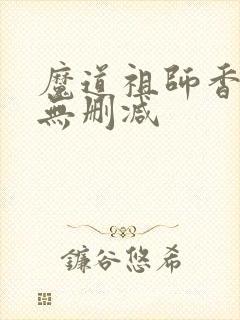 魔道祖師香
無刪減
鐮谷悠希